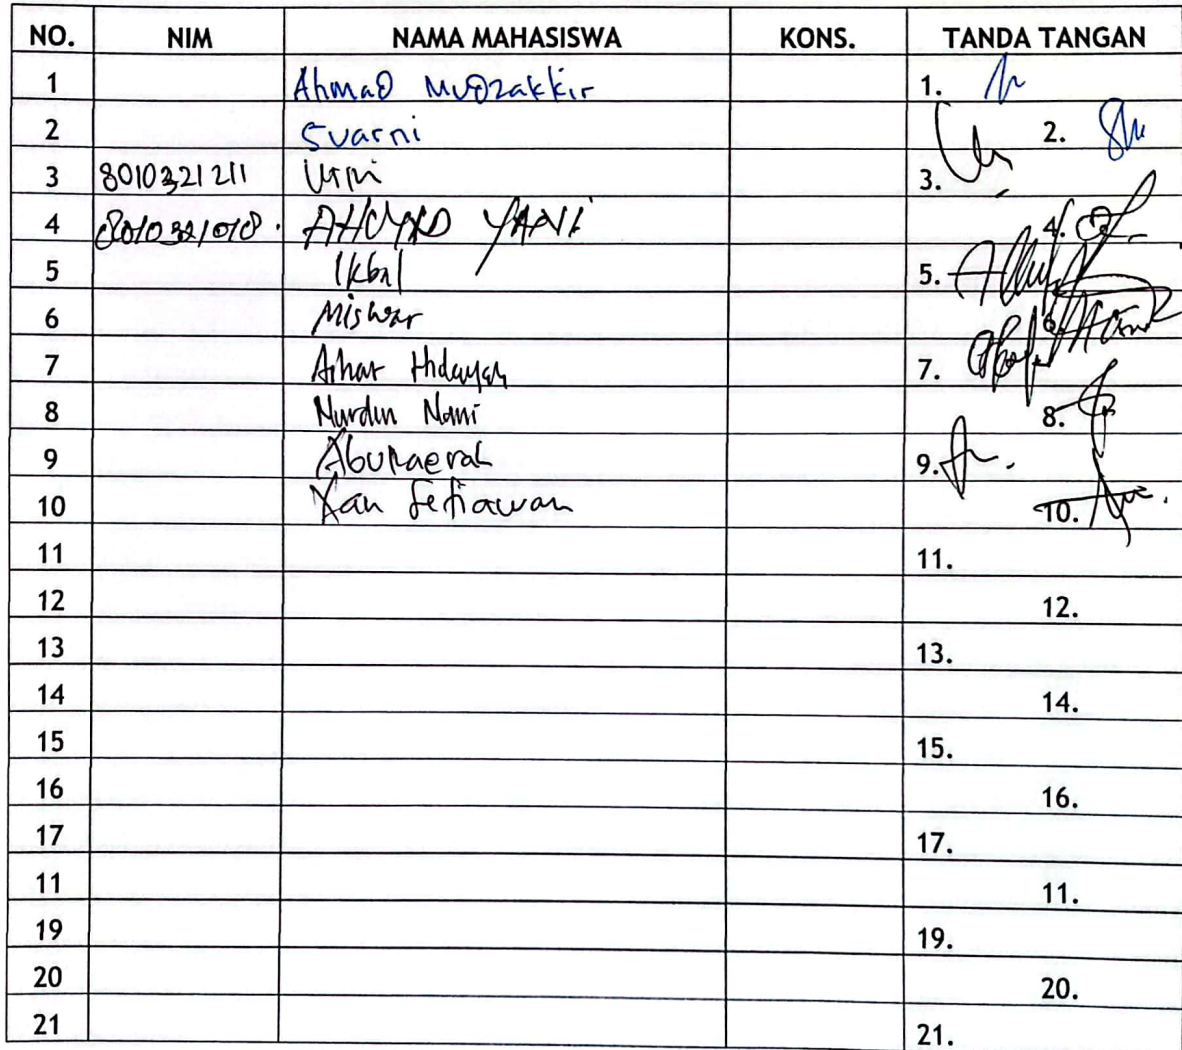 NO. NIM NAMA MAHASISWA KONS. TANDA TANGAN
1 Ahmad Mudzakkir 1.
2 Suarni 2.
3 8010321211 3.
4 8010321018. AHMAD YANI 4.
5 Ikbal 5.
6 Miswar 6.
7 Hidayah 7.
8 Nurdin 8.
9 Aburaerah 9.
10 Setiawan 10.
11 11.
12 12.
13 13.
14 14.
15 15.
16 16.
17 17.
11 11.
19 19.
20 20.
21 21.